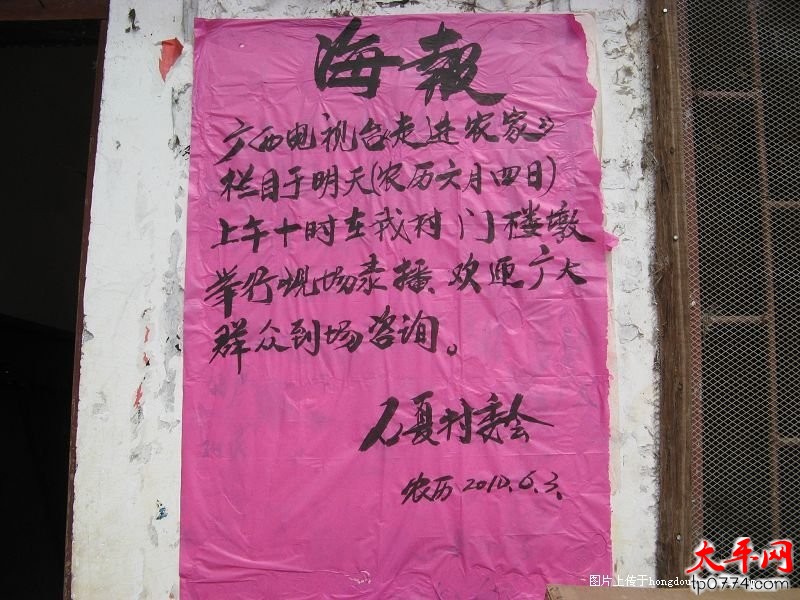 海報
广西电视台《走进农家》
栏目于明天(农历六月四日)
上午十时在我村门楼墩
举行现场录播,欢迎广大
群众到场咨询。
夏村委会
农历2010.6.3.
图片上传于hongdou
太平网
tp0774.com